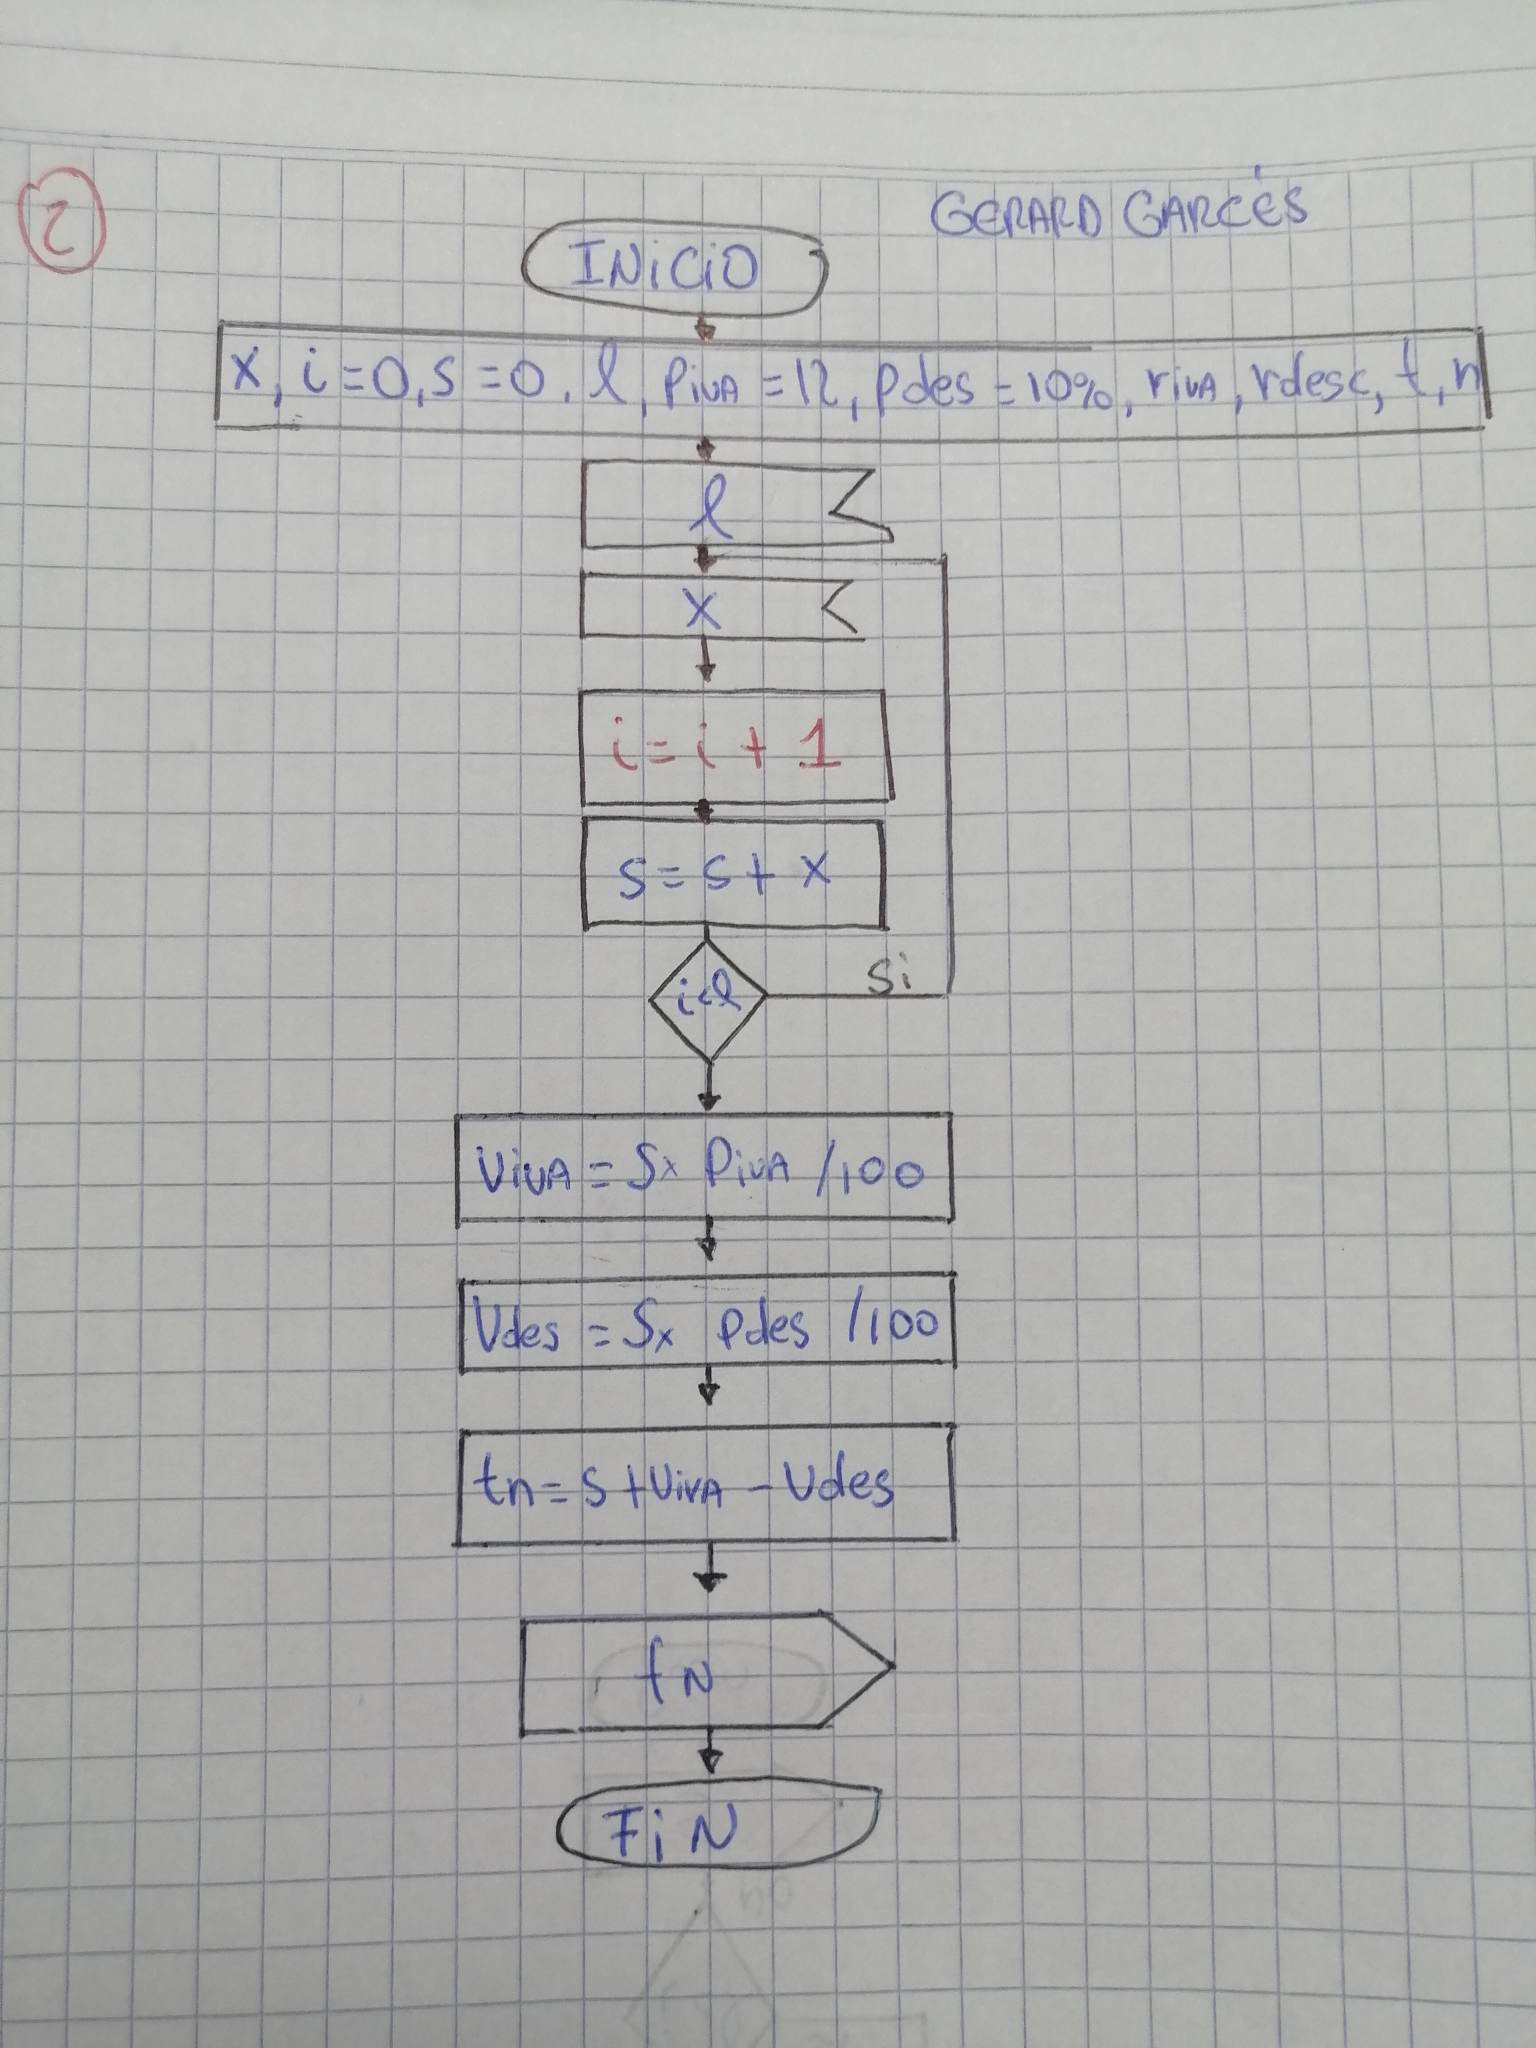 2
GERARD GARCÉS
INiCiO
x, i=0, s=0, l, PivA=12, Pdes=10%, rivA, rdesc, t, n
l
x
i=i+1
s=s+x
i<l
Si
VivA=Sx PivA /100
Vdes=Sx Pdes /100
tn=s+VivA-Vdes
tN
FiN